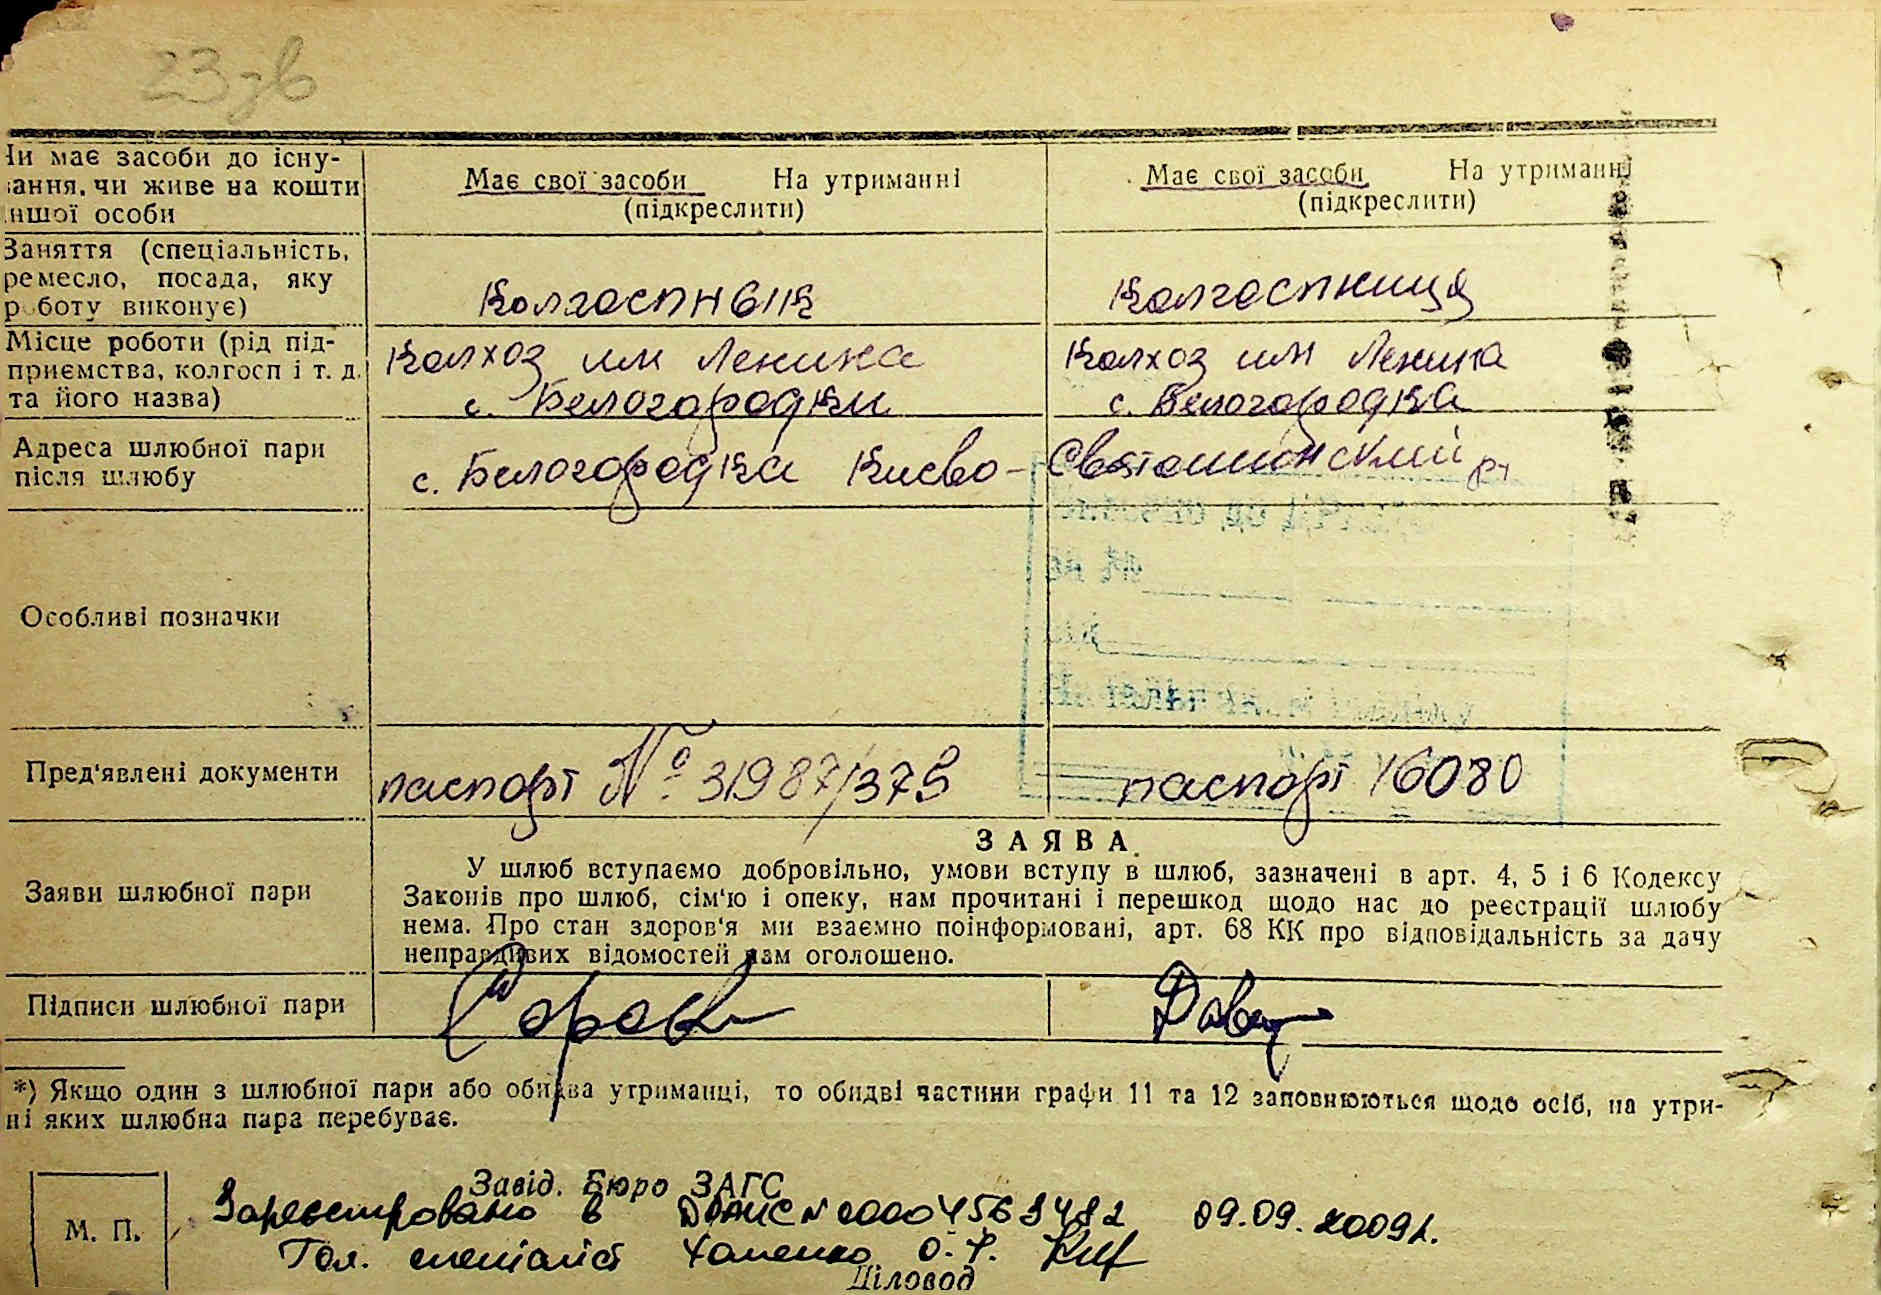 23 зв
Чи має засоби до існу-
вання, чи живе на кошти
іншої особи
Має свої засоби На утриманні
(підкреслити)
Має свої засоби На утриманні
(підкреслити)
Заняття (спеціальність,
ремесло, посада, яку
роботу виконує)
Колгоспник
Колгоспниця
Місце роботи (рід під-
приємства, колгосп і т. д.
та його назва)
Колхоз им Ленина
с. Белогородки
Колхоз им Ленина
с. Белогородка
Адреса шлюбної пари
після шлюбу
с. Белогородка Киево-Святошинский р-н
Особливі позначки
Пред'явлені документи
паспорт № 31987/379
паспорт 16080
Заяви шлюбної пари
ЗАЯВА.
У шлюб вступаємо добровільно, умови вступу в шлюб, зазначені в арт. 4, 5 і 6 Кодексу
Законів про шлюб, сім'ю і опеку, нам прочитані і перешкод щодо нас до реєстрації шлюбу
нема. Про стан здоров'я ми взаємно поінформовані, арт. 68 КК про відповідальність за дачу
неправдивих відомостей нам оголошено.
Підписи шлюбної пари
*) Якщо один з шлюбної пари або обидва утриманці, то обидві частини графи 11 та 12 заповнюються щодо осіб, на утри-
ні яких шлюбна пара перебуває.
Завід. Бюро ЗАГС
Зареєстровано в ДРАЦС № 00004563482 09.09.2009р.
Гол. спеціаліст О.
М. П.
Діловод